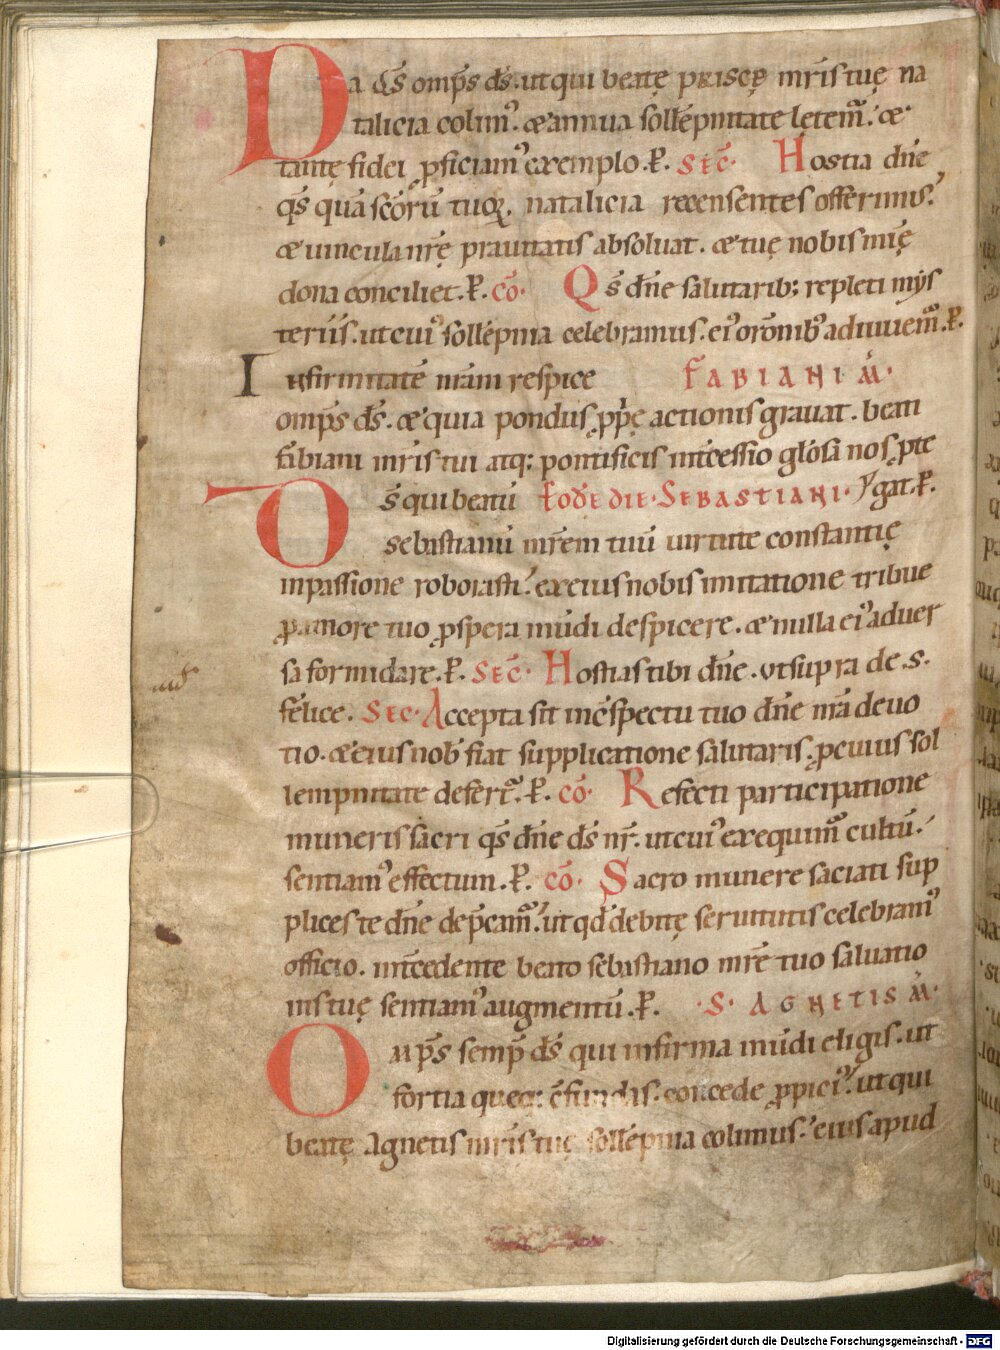 Da q̄s omp̄s d̄s. ut qui beatę priscę mr̄is tuę na
talicia colim᷒. & annua sollēpnitate lętem᷒. &
tantę fidei ꝓficiam᷒ exemplo. ꝑ. SEC̄. Hostia dn̄e
q̄s quā sc̄orū tuoꝝ. natalicia recensentes offerimus.
& uincula nr̄ę prauitatis absoluat. & tuę nobis mīę
dona conciliet. ꝑ. CŌ. Qs̄ dn̄e salutarib; repleti mys
teriis. ut cui᷒ sollēpnia celebramus. ei᷒ orōnib᷒ adiuuem᷒. ꝑ.
Infirmitatē nr̄am respice FABIANI M̄.
omp̄s d̄s. & quia pondus ꝓpr̄ę actionis grauat. beati
fabiani mr̄is tui atq; pontificis int̄cessio glōsa nos ꝓte
Ds̄ qui beatū EODĒ DIE. SEBASTIANI. gat. ꝑ.
sebastianū mr̄em tuū uirtute constantię
in passione roborasti. ex eius nobis imitatione tribue
ꝓ amore tuo ꝓspera mūdi despicere. & nulla ei᷒ aduer
sa formidare. ꝑ. SEC̄. Hostias tibi dn̄e. ut supra de .s.
felice. SEC. Accepta sit in c̄spectu tuo dn̄e nr̄a deuo
tio. & eius nob̄ fiat supplicatione salutaris. ꝓ cuius sol
lempnitate defert᷒. ꝑ. CŌ. Refecti participatione
muneris sacri q̄s dn̄e d̄s nr̄. ut cui᷒ exequim᷒ cultū.
sentiam᷒ effectum. ꝑ. CŌ. Sacro munere saciati sup
plices te dn̄e dep̄cam᷒. ut qd̄ debitę seruitutis celebram᷒
officio. int̄cedente beato sebastiano mr̄e tuo saluatio
nis tuę sentiam᷒ augmentū. ꝑ. .S. AGNETIS M̄.
Omp̄s semp̄ d̄s qui infirma mūdi eligis. ut
fortia queq; c̄fundas. concede ꝓpici᷒. ut qui
beatę Agnetis mr̄is tuę sollēpnia colimus. eius apud
Digitalisierung gefördert durch die Deutsche Forschungsgemeinschaft - DFG